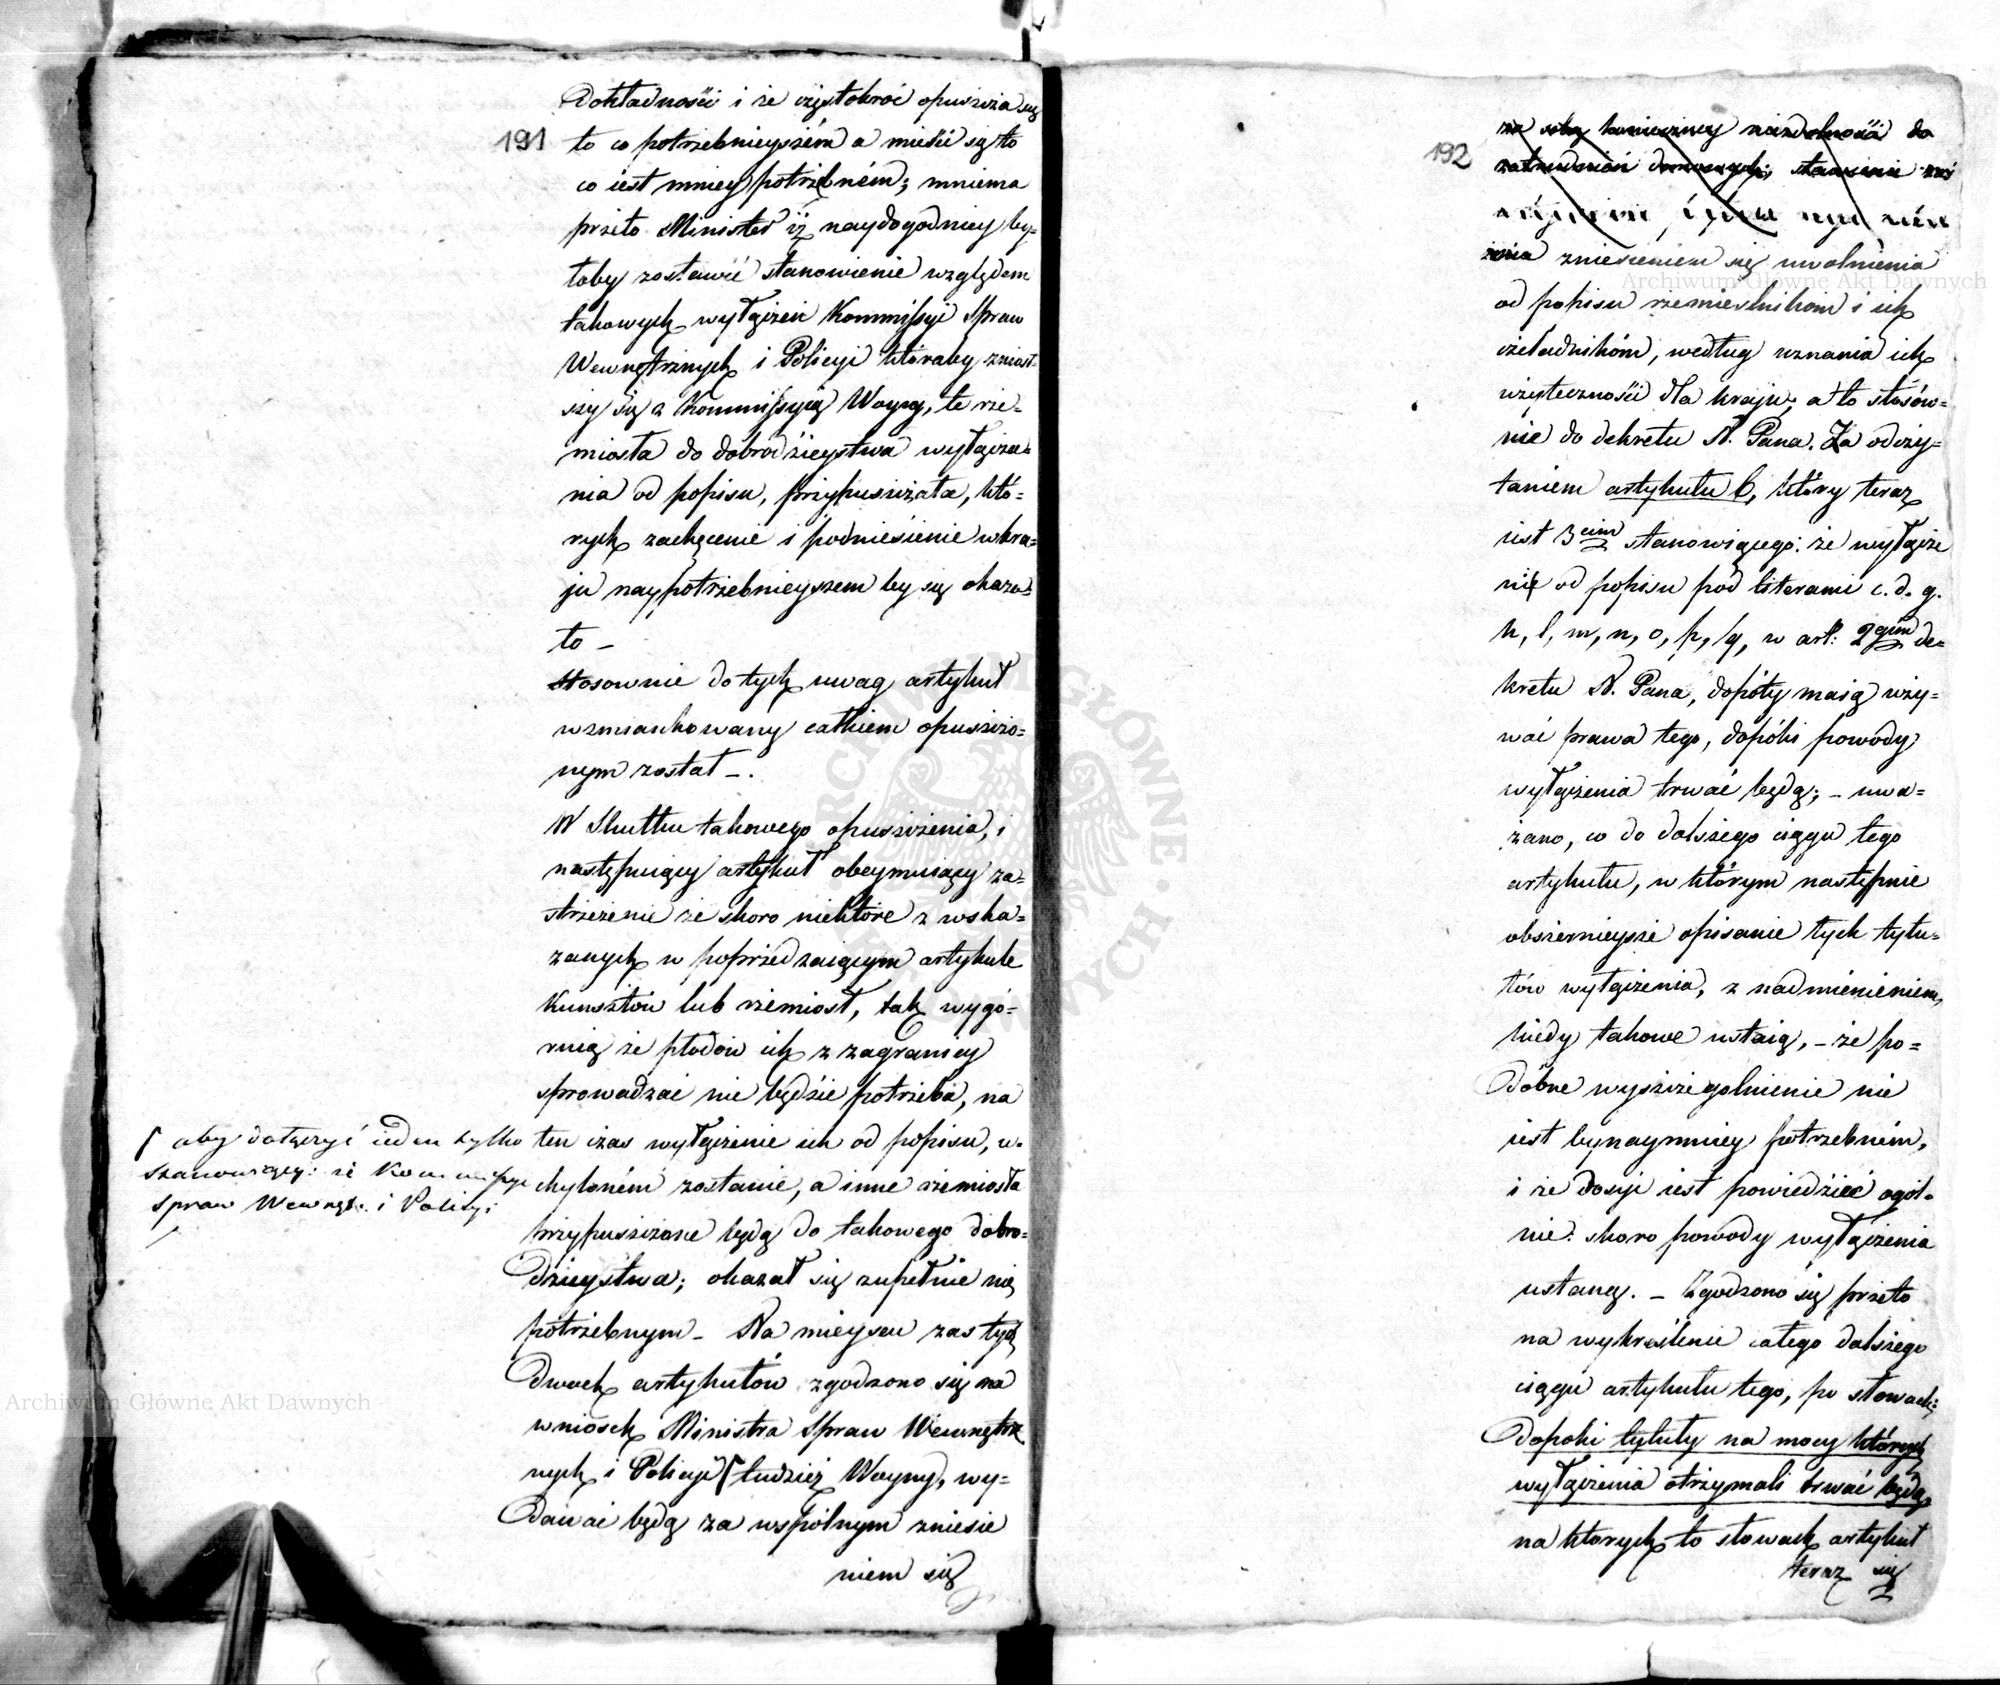 191
Dokładności i że częstokroć opuszcza się
to co potrzebnieyszém a mieści się to
co iest mniey potrzebném; mniema
przeto Minister iż naydogodniey by=
łoby zostawić stanowienie względem
takowych wyłączeń Kommissyi Spraw
Wewnętrznych i Policyi któraby zniosł-
szy się z Kommissyią Woyny, te rze=
miosła do dobrodzieystwa wyłącze=
nia od popisu, przypuszczała, któ=
rych zachęcenie i podniesienie w kra=
ju naypotrzebnieyszem by się okaza=
ło –
Stosownie do tych uwag artykuł
wzmiankowany całkiem opuszczo=
nym został –.
W Skutku takowego opuszczenia, i
następuiący artykuł obeymuiący za=
strzeżenie że skoro niektóre z wska=
zanych w poprzedzaiącym artykule
Kunsztów lub rzemiosł, tak wygó=
ruią że płodów ich z zagranicy
sprowadzać nie będzie potrzeba, na
ten czas wyłączenie ich od popisu, u=
chyloném zostanie, a inne rzemiosła
przypuszczone będą do takowego dobro=
dzieystwa; okazał się zupełnie nie
potrzebnym – Na mieyscu zas tych
Dwóch artykułów zgodzono się na
wniosek Ministra Spraw Wewnętrz
nych i Policyi ſ tudzież Woyny, wy=
dawać będą za wspólnym zniesie
niem się
ſ aby dołączyć ieden tylko
stanowiący: że Kommissye
Spraw Wewnętr. i Policyi
192
za sobą konieczney niezdolności do
zatrudnień domowych; stawienie
żenia zniesieniem się uwolnienia
od popisu rzemieslnikom i ich
czeladnikóm, według uznania ich
użyteczności dla kraju; a to stósów=
nie do dekretu N. Pana. Za odczy=
taniem artykułu 6, który teraz
iest 3cim stanowiącego: że wyłącze
nie od popisu pod literami c. d. g.
k, l, m, n, o, p, q, w art: 2gim de=
kretu N. Pana, dopóty maią uży=
wać prawa tego, dopóki powody
wyłączenia trwać będą; – uwa=
żano, co do dalszego ciągu tego
artykułu, w którym następnie
obszernieysze opisanie tych tytu=
łów wyłączenia, z nadmienieniem,
kiedy takowe ustaią, – że po=
dobne wyszczegolnienie nie
iest bynaymniey potrzebném,
i że dosyć iest powiedzieć ogól=
nie: skoro powody wyłączenia
ustaną. – Zgodzono się przeto
na wykréslenie całego dalszego
ciągu artykułu tego, po słowach;
Dopoki tytuły na mocy których
wyłączenia otrzymali trwać będą,
na których to słowach artykuł
teraz się
Archiwum Główne Akt Dawnych
Archiwum Główne Akt Dawnych
ARCHIWUM GŁÓWNE AKT DAWNYCH